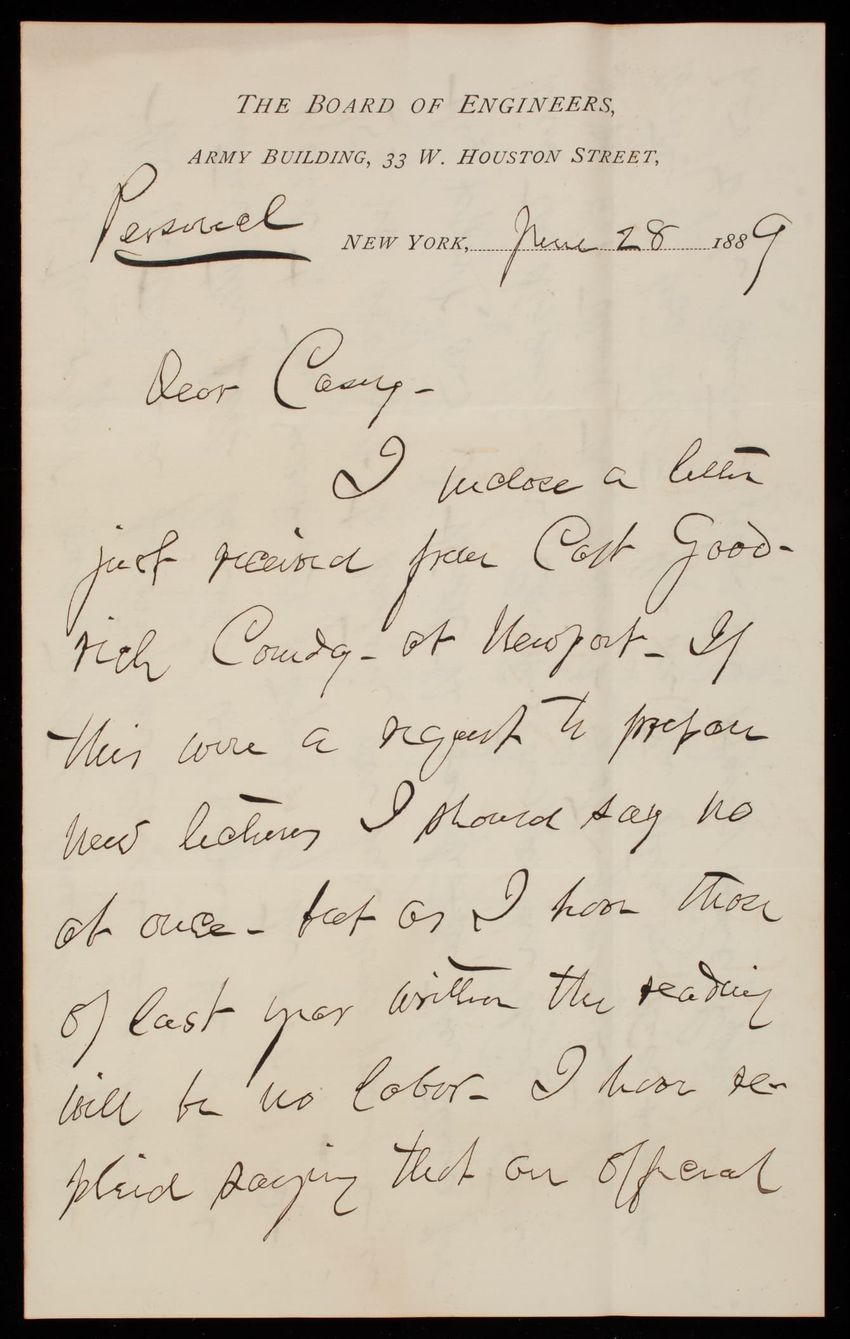 THE BOARD OF ENGINEERS,
ARMY BUILDING, 33 W. HOUSTON STREET,
Personal
NEW YORK, June 28 1889
Dear Casey -
I inclose a letter
just received from Capt Good-
rich Comdg - at Newport - If
this were a request to prepare
new lectures I should say no
at once - but as I have those
of last year written the reading
will be no labor - I have re-
plied saying that an official